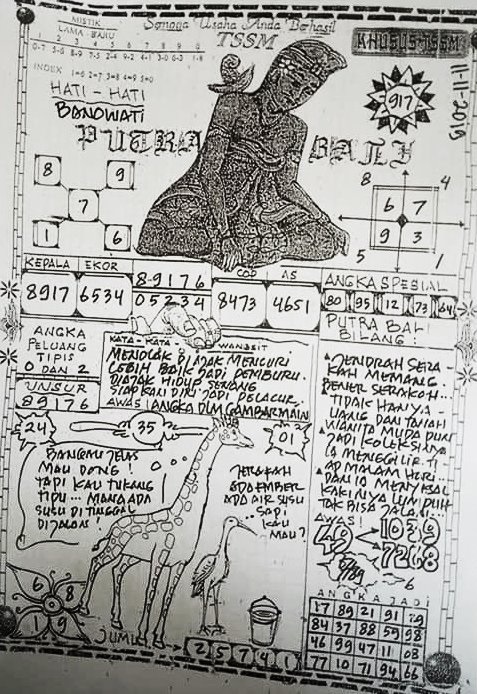 Semoga Usaha Anda Berhasil
TSSM
KHUSUS TSSM
11-11-2013
MISTIK
LAMA BARU
1 2 3 4 5 6 7 8 9 0
INDEX 1=6 2=7 3=8 4=9 5=0
HATI - HATI
BANOWATI
PUTRA BALI
917
8 9
7
1 6
8 4
6 7
9 3
5 1
KEPALA EKOR
8917 6534
8-9176
05234
COP AS
8473 4651
ANGKA SPESIAL
80 95 12 73 64
ANGKA
PELUANG
TIPIS
0 DAN 2
UNSUR
89176
KATA - KATA - WANGSIT
MENOLAK DIAJAK MENCURI
LEBIH BAIK JADI PEMBURU.
DIAJAK HIDUP SENANG
SIAPKAN DIRI JADI PELACUR.
AWAS ANGKA DLM GAMBAR MAIN
PUTRA BALI
BILANG :
JENDRAH SERA-
KAH MEMANG.
BENER SERAKAH...
TIDAK HANYA -
UANG DAN TANAH
WANITA MUDA PUN
JADI KOLEKSINYA
IA MENGGILIR TI
AP MALAM HARI...
KAKINYA LUMPUH
TAK BISA JALAN...
AWAS!
1039
7268
6
24
35
01
BANGMU JELAS
MAU DONG!
TAPI KAU TUKANG
TIPU... MANA ADA
SUSU DI TINGGAL
DIJALAN!
JERAKAH
ADA EMBER
ADA AIR SUSU
SAPI
KAU
MAU?
6 8
1 9
JUMLAH
2 5 7 4 1
ANGKA JADI
17 89 21 91
84 37 88 59 98
46 99 47 11 03
77 10 71 94 66